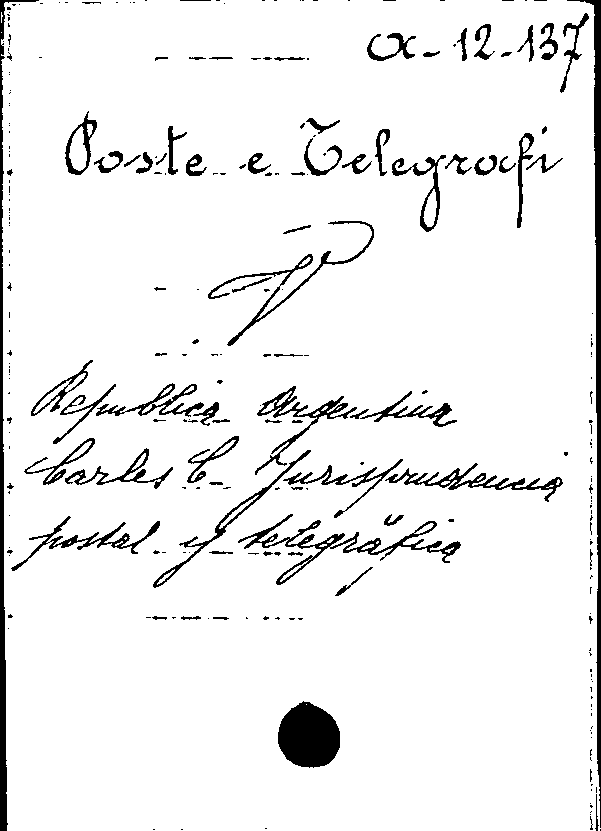 α-12-137
Poste e Telegrafi
V
Republica Argentina
Carles C- Jurisprudencia
postal y telegráfica